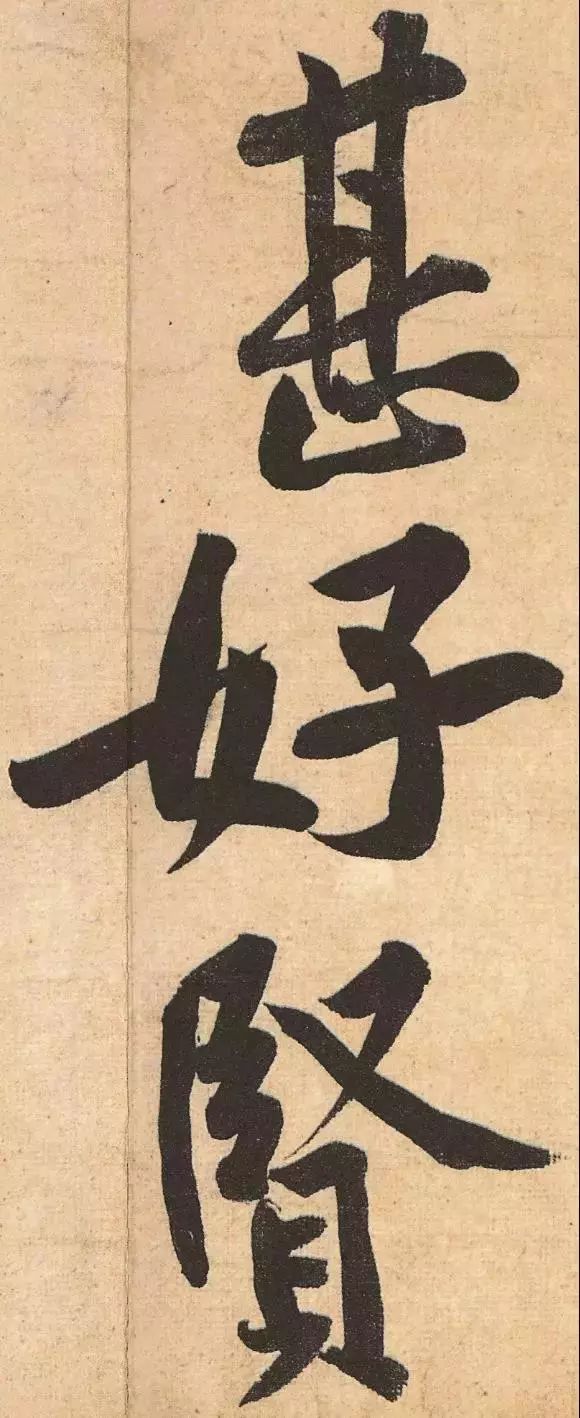 甚好賢